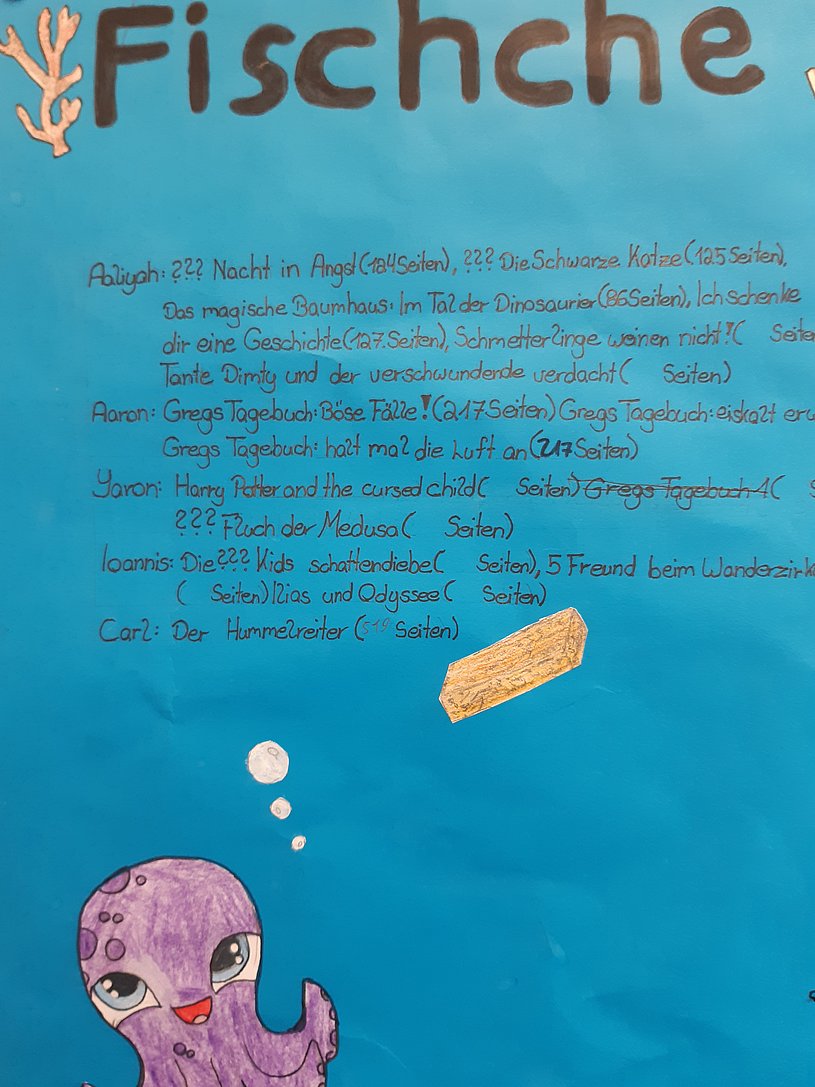 Fischche
Aaliyah: ??? Nacht in Angst (184 Seiten), ??? Die Schwarze Katze (125 Seiten),
Das magische Baumhaus: Im Tal der Dinosaurier (86 Seiten), Ich schenke
dir eine Geschichte (127. Seiten), Schmetterlinge weinen nicht! ( Seiten
Tante Dimity und der verschwundende verdacht ( Seiten)
Aaron: Gregs Tagebuch: Böse Fälle! (217 Seiten) Gregs Tagebuch: eiskalt erw
Gregs Tagebuch: halt mal die Luft an (217 Seiten)
Yaron: Harry Potter and the cursed child ( Seiten) Gregs Tagebuch 1 ( S
??? Fluch der Medusa ( Seiten)
Ioannis: Die ??? Kids schattendiebe ( Seiten), 5 Freund beim Wanderzirk
( Seiten) Ilias und Odyssee ( Seiten)
Carl: Der Hummelreiter (519 Seiten)